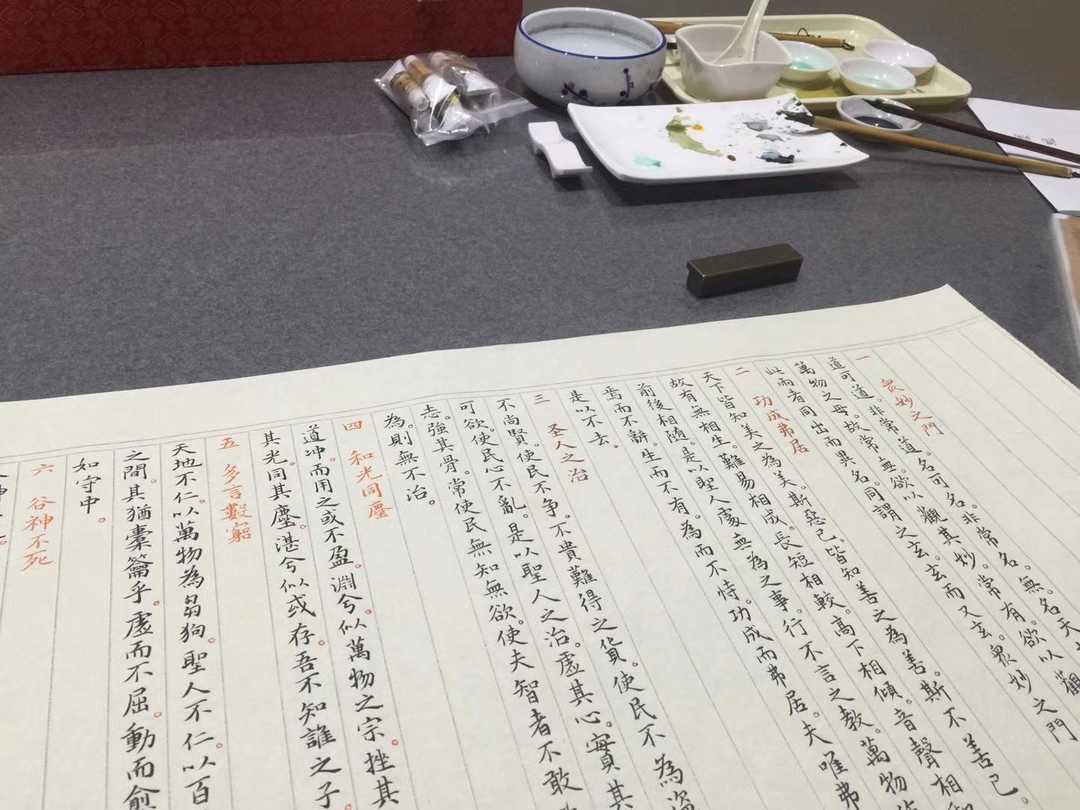 一 衆妙之门
道可道。非常道。名可名。非常名。無名天
萬物之母。故常無欲以觀其妙。常有。欲以觀
此两者同出而異名。同謂之玄。玄而又玄。衆妙之門
二 功成弗居
天下皆知美之為美。斯惡已。皆知善之為善。斯不善已。
故有無相生。難易相成。長短相較。高下相傾。音聲相
前後相随。是以聖人處無為之事。行不言之教。萬物
焉而不辭。生而不有。為而不恃。功成而弗居。夫唯弗
是以不去。
三 圣人之治
不尚賢。使民不争。不貴難得之貨。使民不為盗
可欲。使民心不亂。是以聖人之治。虛其心。實其
志。強其骨。常使民無知無欲。使夫智者不敢
為。則無不治。
四 和光同塵
道冲而用之或不盈。淵兮似萬物之宗。挫其
其光。同其塵。湛兮似或存。吾不知誰之子
五 多言數窮
天地不仁。以萬物為芻狗。聖人不仁。以百
之間。其猶橐籥乎。虛而不屈。動而愈
如守中。
六 谷神不死